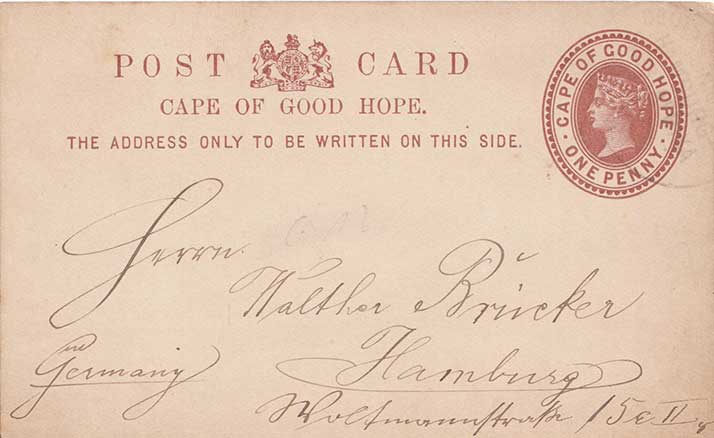 POST CARD
CAPE OF GOOD HOPE.
THE ADDRESS ONLY TO BE WRITTEN ON THIS SIDE.
CAPE OF GOOD HOPE
ONE PENNY
Herrn
Walther Brücker
Germany
Hamburg
Woltmannstraße 15c II